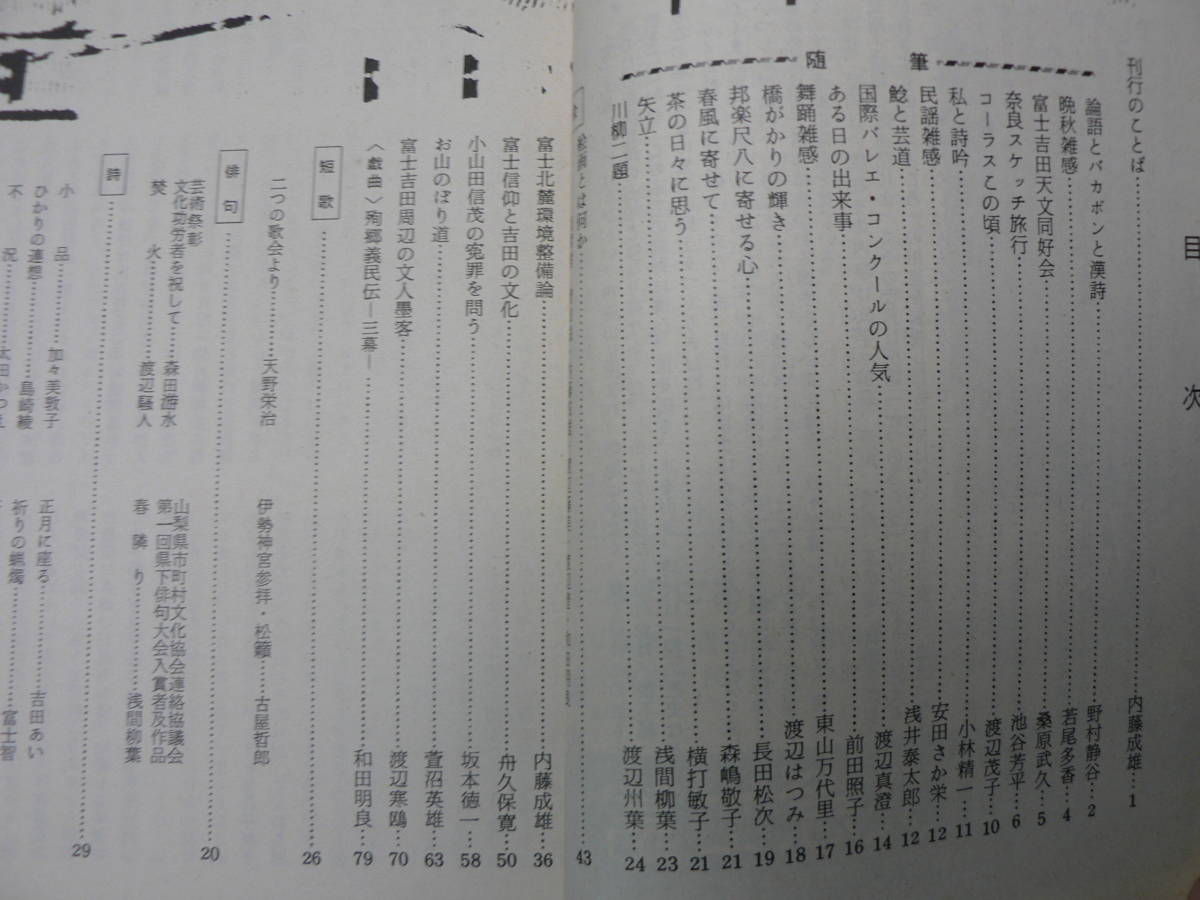 目次
刊行のことば……内藤成雄…1
随筆
論語とパカポンと漢詩……野村静谷…2
晩秋雑感……若尾多香…4
富士吉田天文同好会……桑原武久…5
奈良スケッチ旅行……池谷芳平…6
コーラスこの頃……渡辺茂子…10
私と詩吟……小林精一…11
民謡雑感……安田さか栄…12
鯰と芸道……浅井泰太郎…12
国際バレエ・コンクールの人気……渡辺真澄…14
ある日の出来事……前田照子…16
舞踊雑感……東山万代里…17
橋がかりの輝き……渡辺はつみ…18
邦楽尺八に寄せる心……長田松次…19
春風に寄せて……森嶋敬子…21
茶の日々に思う……横打敏子…21
矢立……浅間柳葉…23
川柳二題……渡辺州葉…24
絵画とは何か……43
富士北麓環境整備論……内藤成雄…36
富士信仰と吉田の文化……舟久保寛…50
小山田信茂の冤罪を問う……坂本徳一…58
お山のぼり道……萱沼英雄…63
富士吉田周辺の文人墨客……渡辺寒鴎…70
〈戯曲〉殉郷義民伝―三幕―……和田明良…79
短歌……26
二つの歌会より……天野栄治
伊勢神宮参拝・松籟……古屋哲郎
俳句……20
芸術祭彰
文化功労者を祝して……森田游水
焚火……渡辺騒人
山梨県市町村文化協会連絡協議会
第一回県下俳句大会入賞者及作品
春隣り……浅間柳葉
詩……29
小品……加々美敦子
ひかりの連想……島崎綾
不況……太田かつえ
正月に座る……吉田あい
祈りの蝋燭……富士智